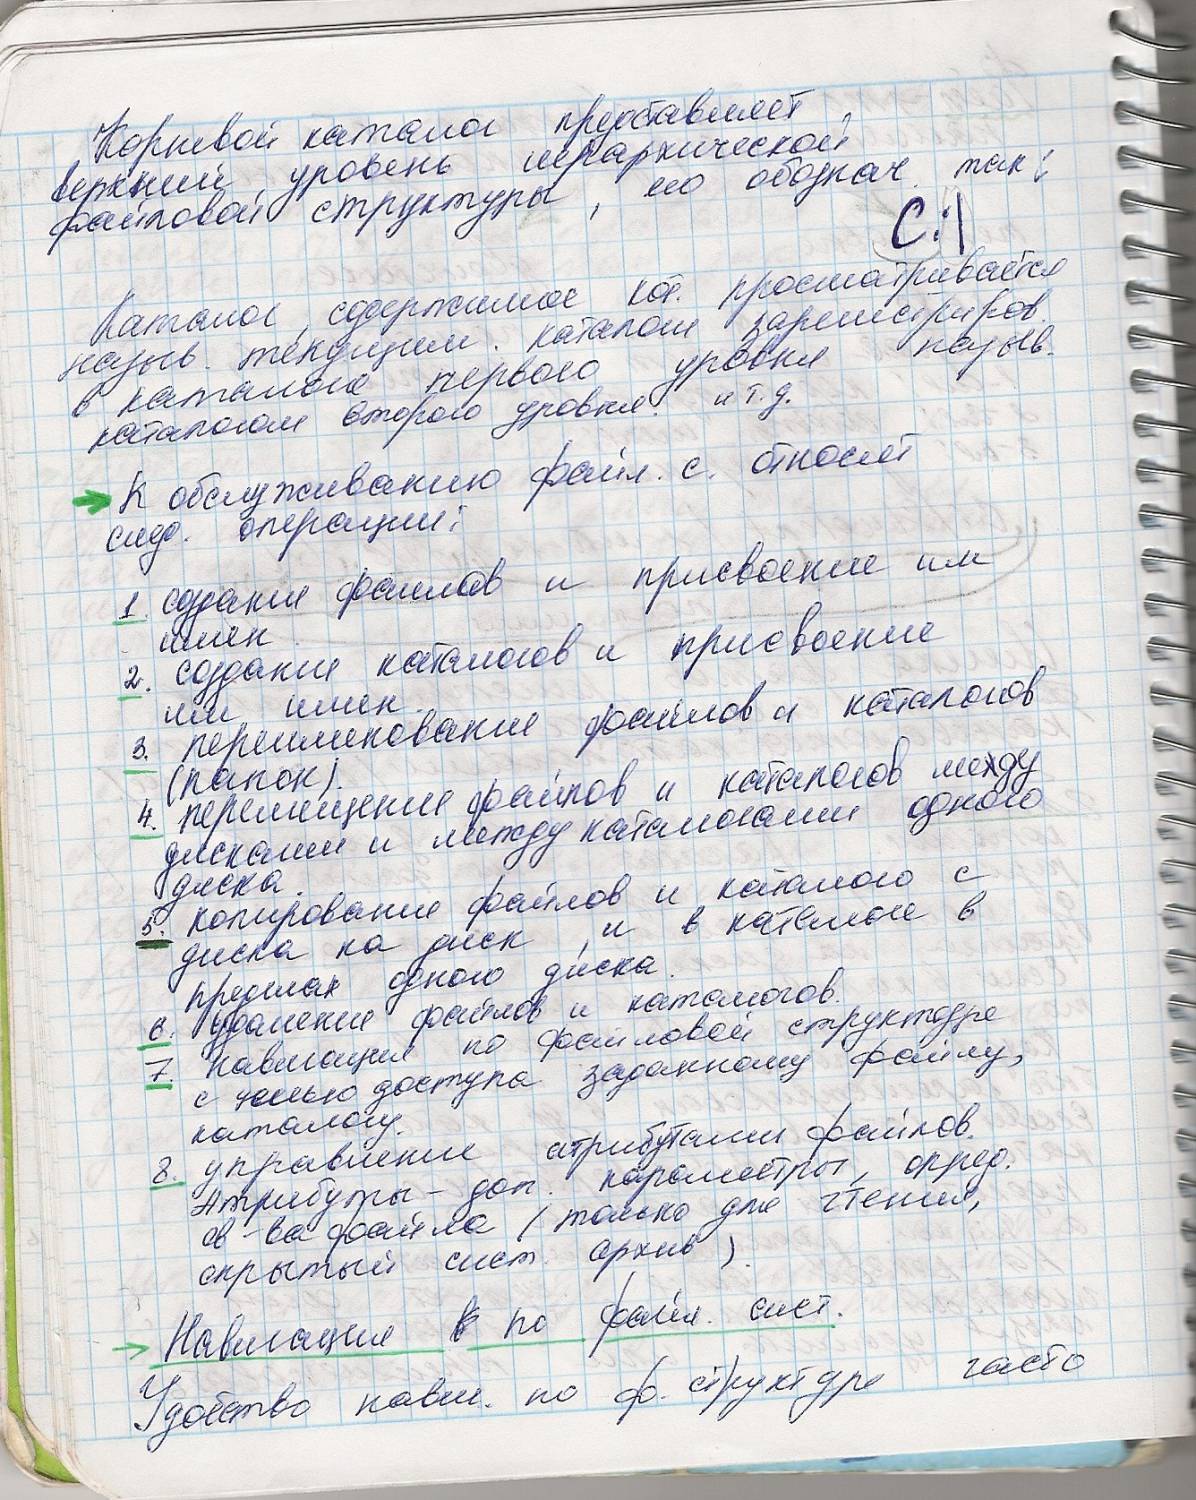 Корневой каталог представляет
верхний уровень иерархической
файловой структуры, его обознач. так:
C:\
Каталог, содержимое кот. просматривается
назыв. текущим. каталоги зарегистриров.
в каталоге первого уровня назыв.
каталогом второго уровня. и т.д.
К обслуживанию файл. с. относят
след. операции:
1. создание файлов и присвоение им
имен.
2. создание каталогов и присвоение
им имен.
3. переименование файлов и каталогов
(папок).
4. перемещение файлов и каталогов между
дисками и между каталогами одного
диска.
5. копирование файлов и каталого с
диска на диск, и в каталоге в
пределах одного диска.
6. удаление файлов и каталогов.
7. навигация по файловой структуре
с целью доступа заданному файлу,
каталогу.
8. управление атрибутами файлов.
Атрибуты - доп. параметры, опред.
св-ва файла (только для чтения,
скрытый сист. архив).
Навигация по файл. сист.
Удобство навиг. по ф. структуре часто